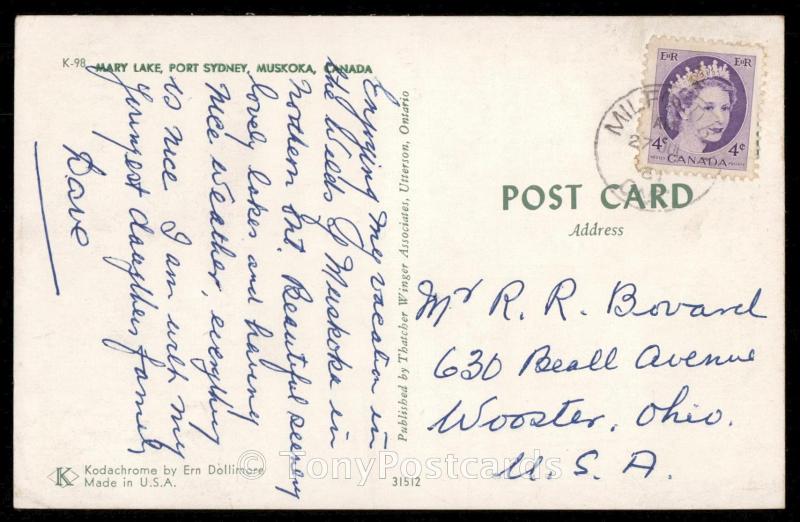 K-98 MARY LAKE, PORT SYDNEY, MUSKOKA, CANADA
Enjoying my vacation in
the wilds of Muskoka in
Northern Ont. Beautiful scenery
lovely lakes and having
nice weather, everything
is nice I am with my
youngest daughters family
Dave
Kodachrome by Ern Dollimore
Made in U.S.A.
K
© TonyPostcards
Published by Thatcher Winger Associates, Utterson, Ontario
31512
EIIR EIIR
4¢ 4¢
POSTES CANADA POSTAGE
MILF
POST CARD
Address
Mr R. R. Bovard
630 Beall Avenue
Wooster, Ohio.
U. S. A.